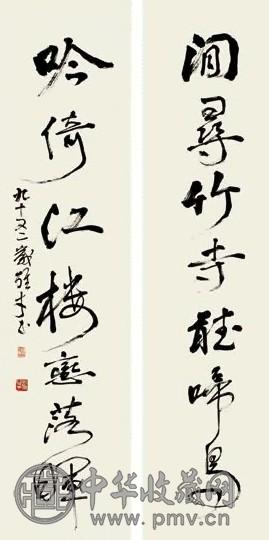 閒尋竹寺聽啼鳥
吟倚江楼戀落暉
九十又二歲
中华收藏网
www.pmv.cn